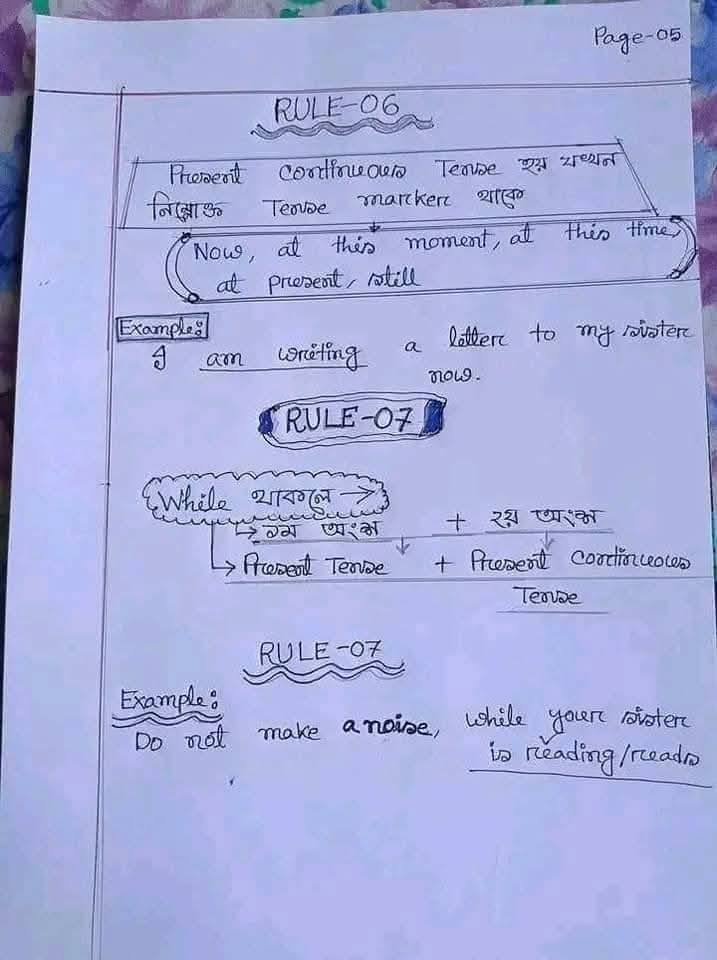 Page-05
RULE-06
Present Continuous Tense হয় যখন
নিম্নোক্ত Tense marker থাকে
Now, at this moment, at this time,
at present, still
Example:
I am writing a letter to my sister
now.
RULE-07
While থাকলে →
১ম অংশ + ২য় অংশ
Present Tense + Present Continuous
Tense
RULE-07
Example:
Do not make a noise, while your sister
is reading/reads